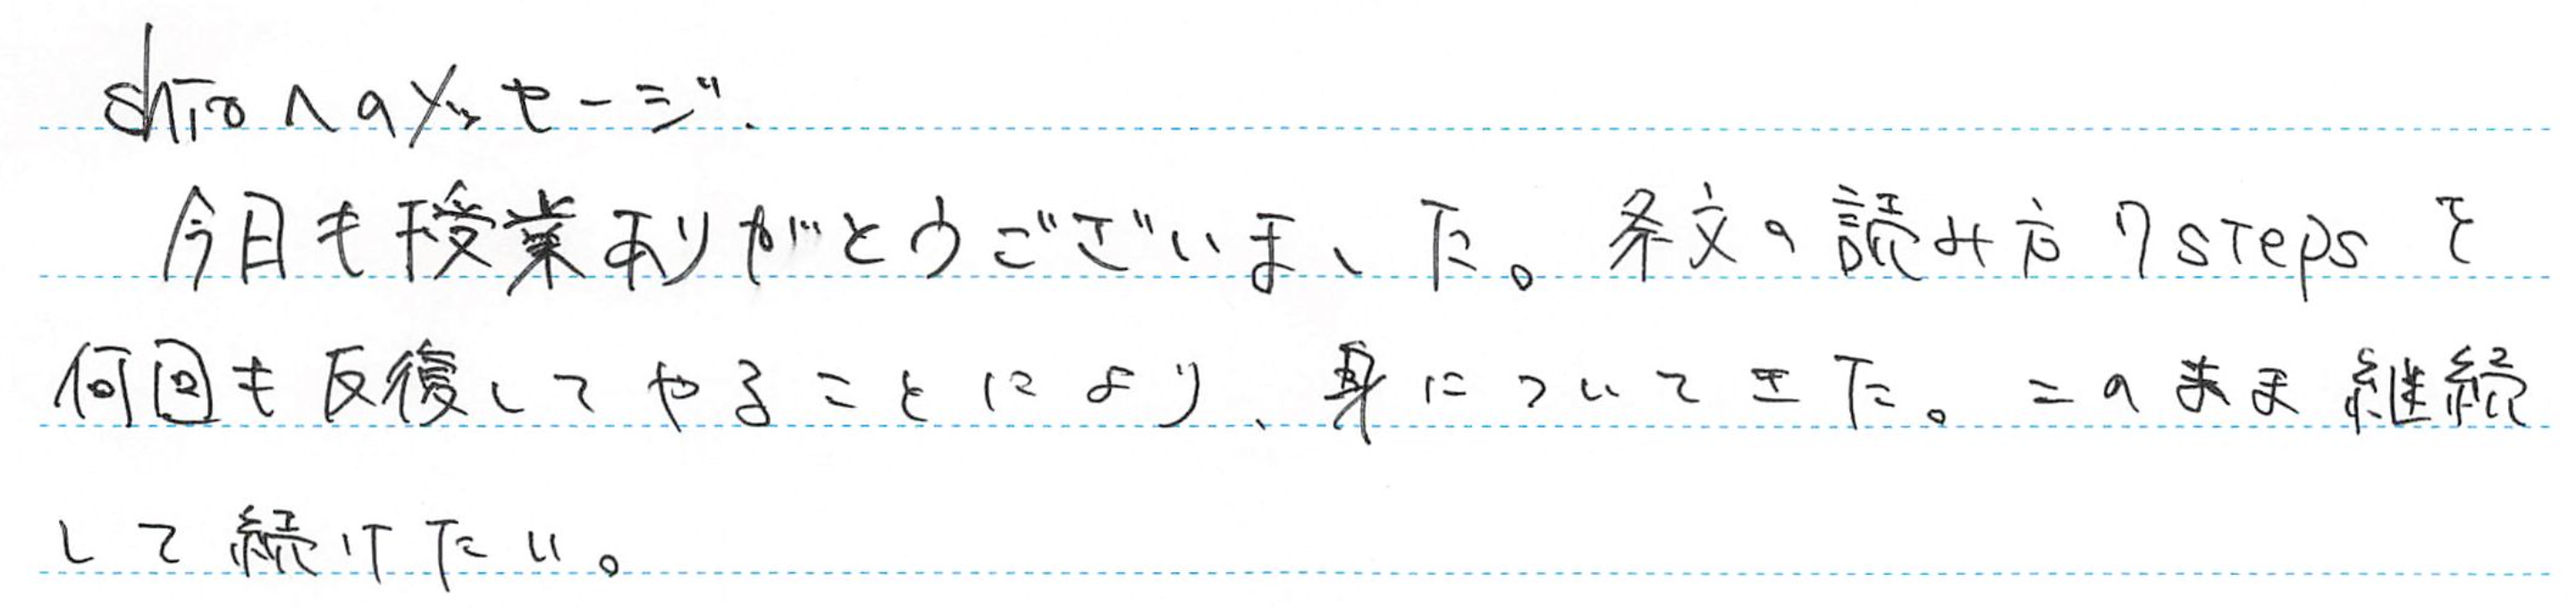 shiroへのメッセージ.
今日も授業ありがとうございました。条文の読み方7stepsを
何回も反復してやることにより、身についてきた。このまま継続
して続けたい。